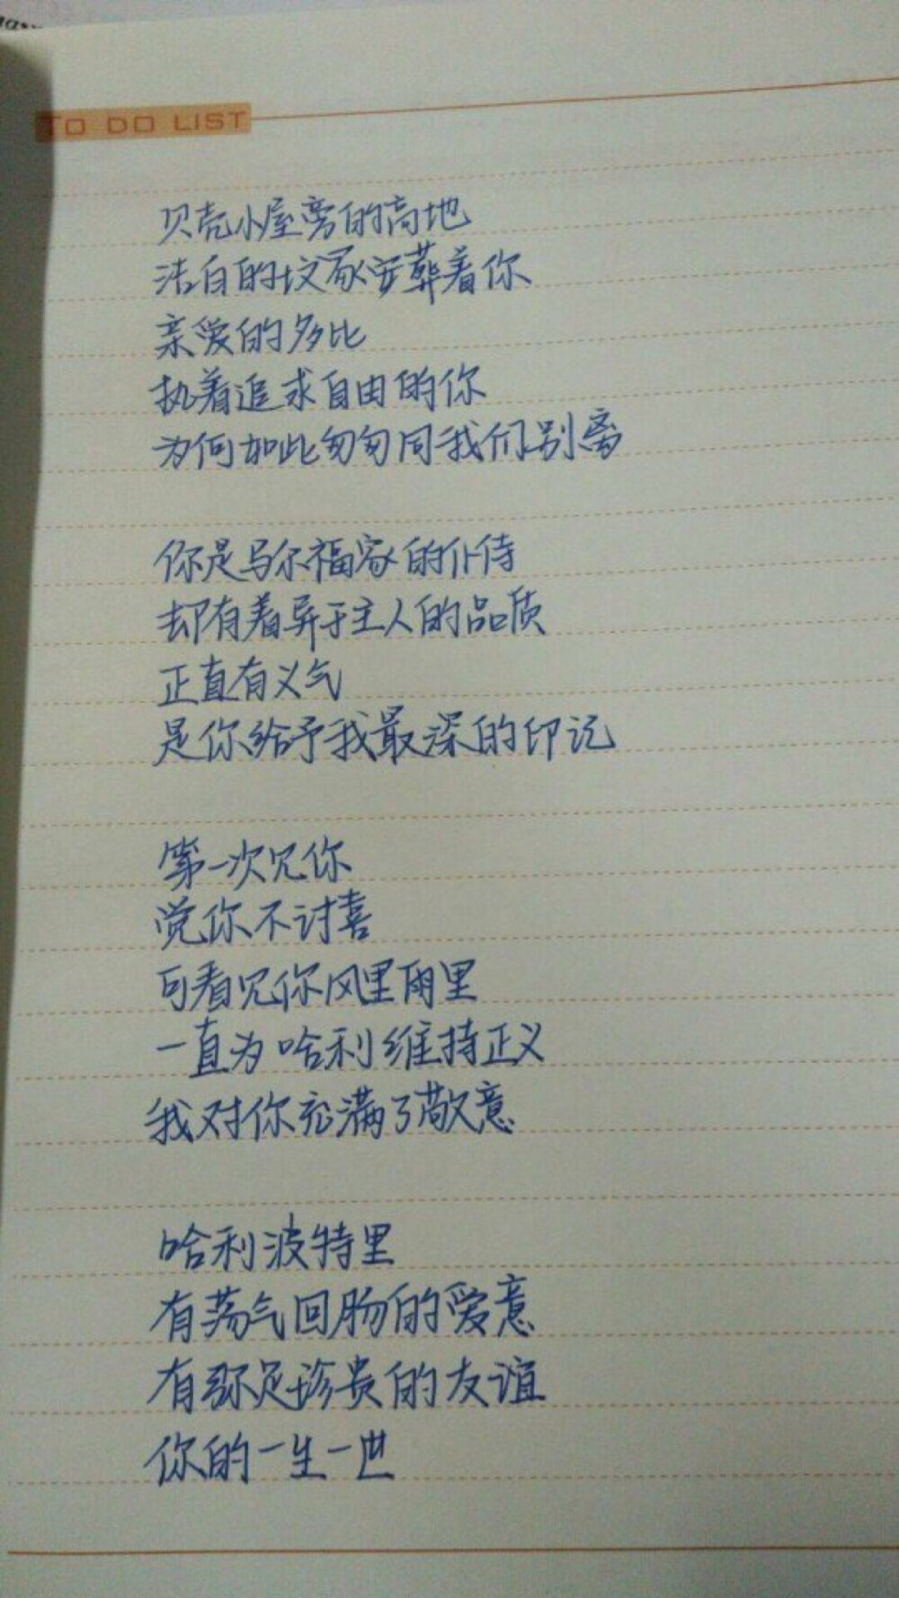 TO DO LIST
贝壳小屋旁的高地
洁白的坟冢安葬着你
亲爱的多比
执着追求自由的你
为何如此匆匆同我们别离
你是马尔福家的仆侍
却有着异于主人的品质
正直有义气
是你给予我最深的印记
第一次见你
觉你不讨喜
可看见你风里雨里
一直为哈利维持正义
我对你充满了敬意
哈利波特里
有荡气回肠的爱意
有弥足珍贵的友谊
你的一生一世